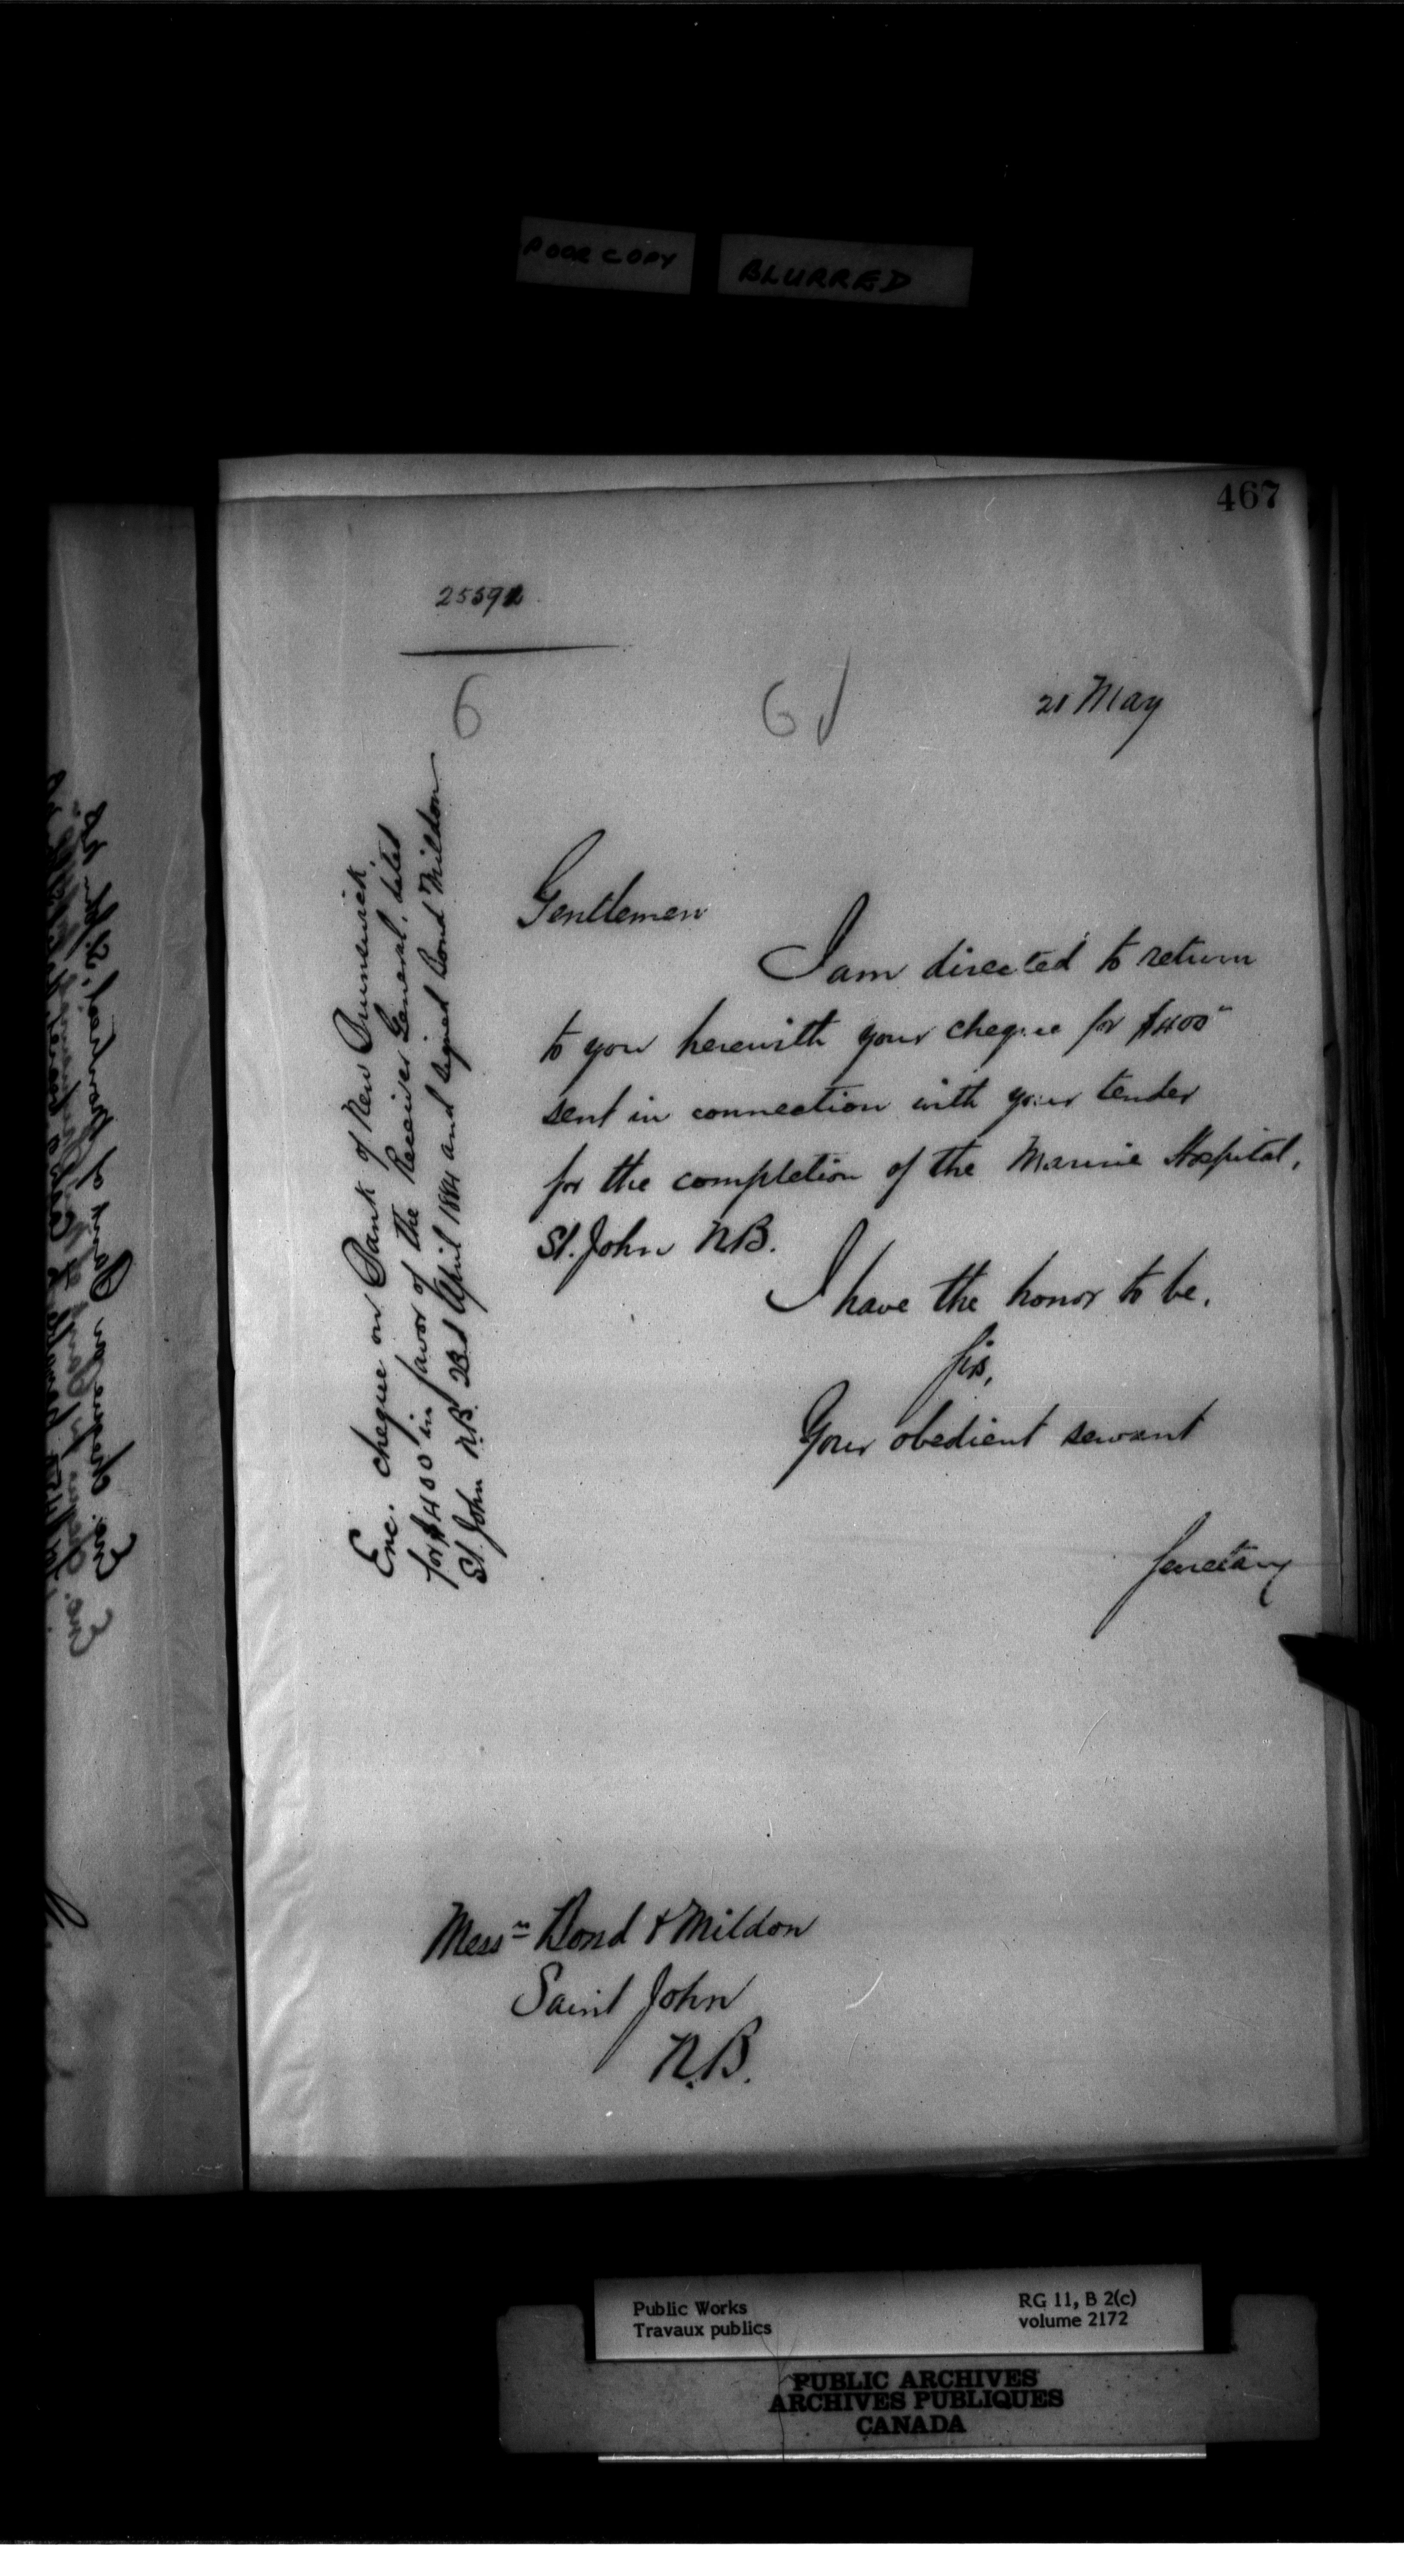 POOR COPY BLURRED
467
25592
6 6
21 May
Gentlemen
I am directed to return
to you herewith your cheque for $400
sent in connection with your tender
for the completion of the Marine Hospital,
St. John N.B.
I have the honor to be,
Sir,
Your obedient servant
Secretary
Enc. cheque on Bank of New Brunswick,
for $400 in favor of the Receiver General, dated
St. John N.B. 23d April 1884 and signed Bond Mildon
Messrs Bond & Mildon
Saint John
N.B.
Public Works
Travaux publics
RG 11, B 2(c)
volume 2172
PUBLIC ARCHIVES
ARCHIVES PUBLIQUES
CANADA